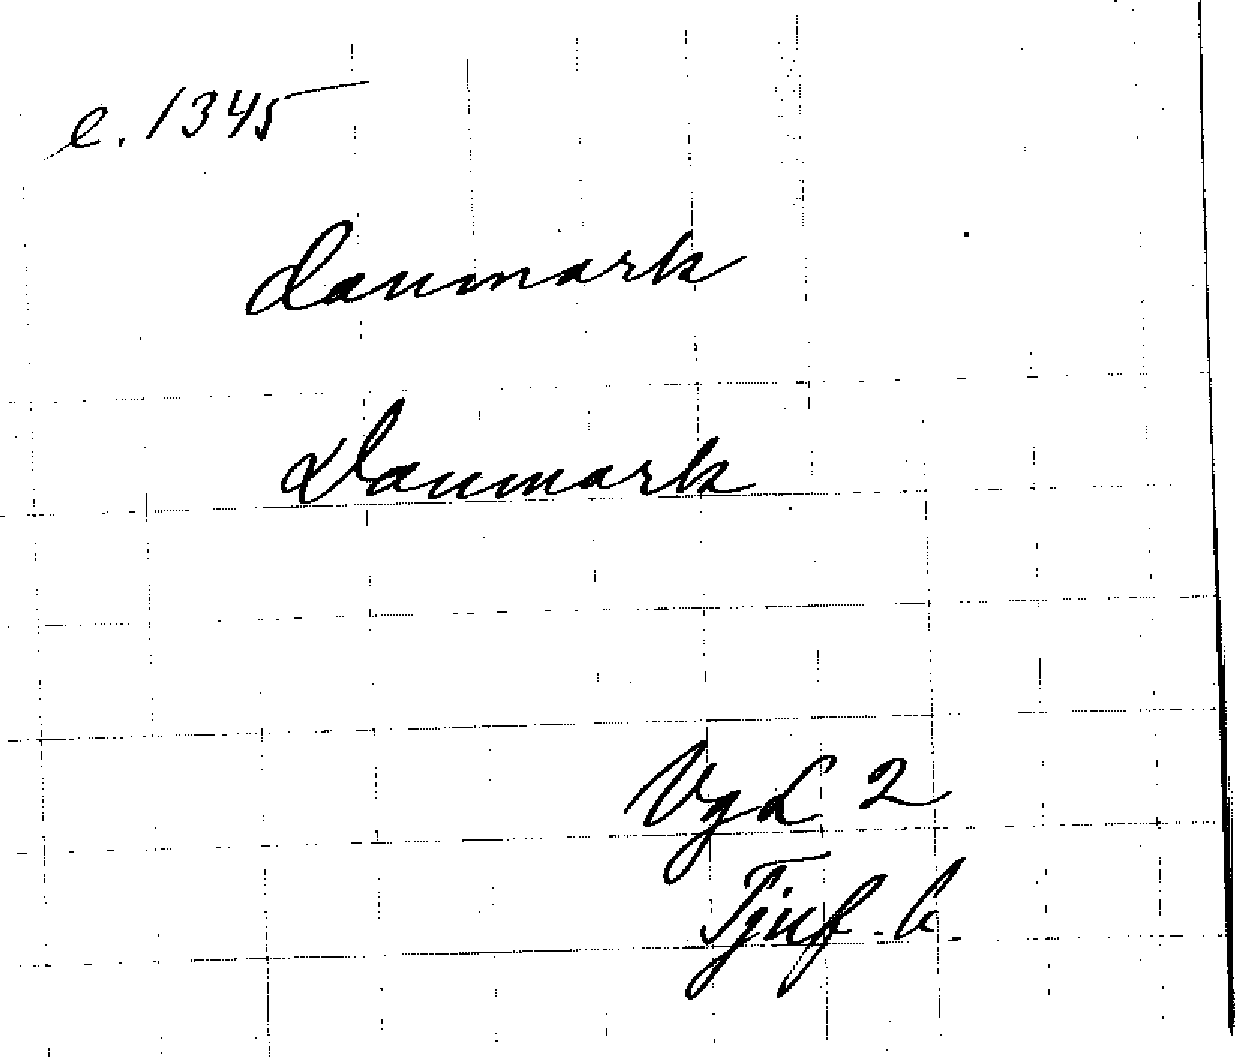 c. 1345
danmark
Danmark
VgL 2
Tjuf. b.